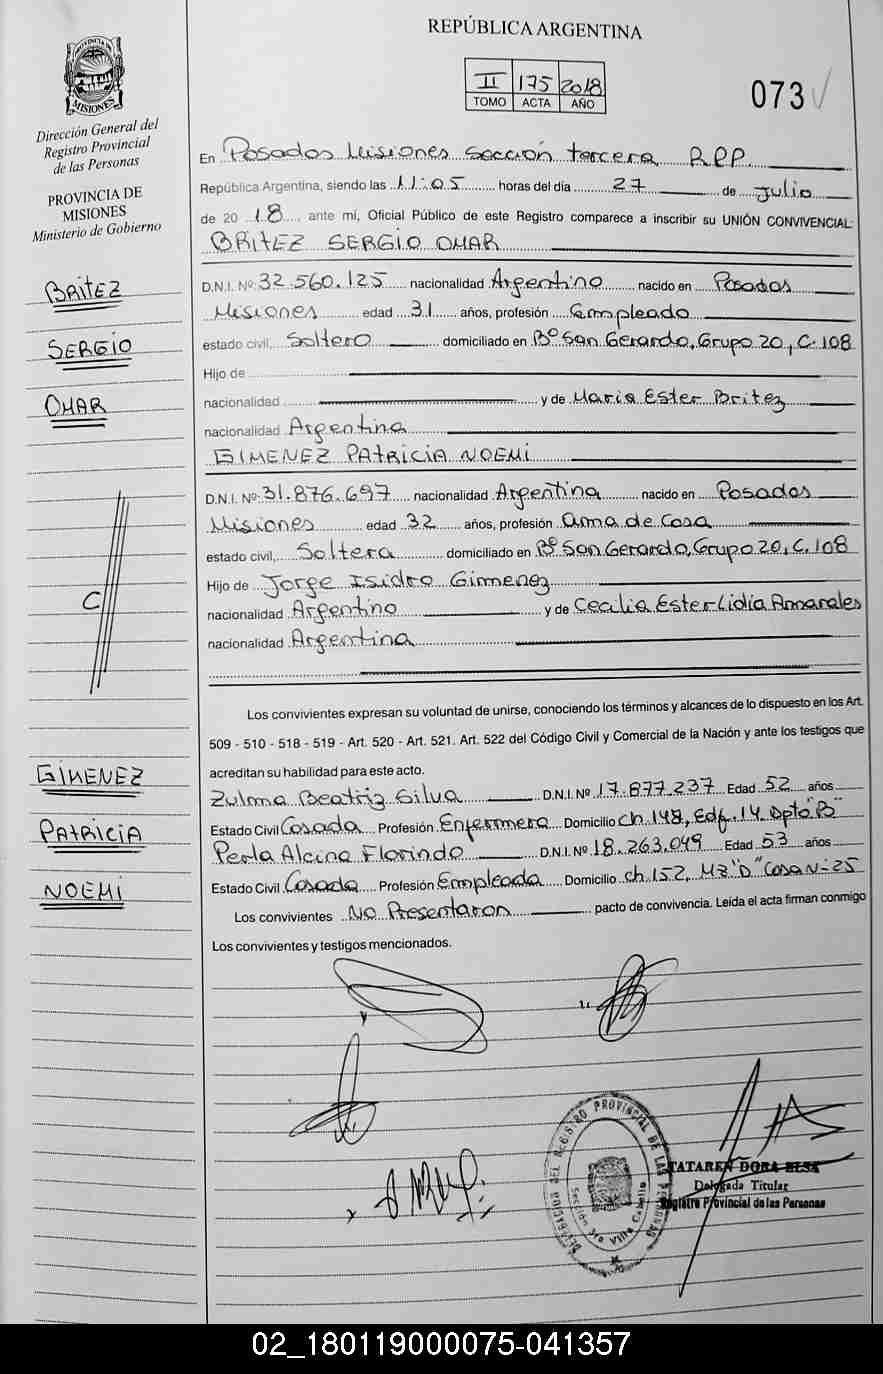 REPÚBLICA ARGENTINA
II 175 2018
TOMO ACTA AÑO
073
PROVINCIA DE
MISIONES
Dirección General del
Registro Provincial
de las Personas
PROVINCIA DE
MISIONES
Ministerio de Gobierno
BRITEZ
SERGIO
OMAR
C
GIMENEZ
PATRICIA
NOEMI
En Posadas Misiones sección tercera R.P.P.
República Argentina, siendo las 11:05 horas del día 27 de Julio
de 20 18, ante mí, Oficial Público de este Registro comparece a inscribir su UNIÓN CONVIVENCIAL:
BRITEZ SERGIO OMAR
D.N.I. Nº 32.560.125 nacionalidad Argentino nacido en Posadas
Misiones edad 31 años, profesión Empleado
estado civil, Soltero domiciliado en Bº San Gerardo, Grupo 20, C. 108
Hijo de
nacionalidad y de Maria Ester Britez
nacionalidad Argentina
GIMENEZ PATRICIA NOEMI
D.N.I. Nº 31.876.697 nacionalidad Argentina nacido en Posadas
Misiones edad 32 años, profesión ama de Casa
estado civil, Soltera domiciliado en Bº San Gerardo, Grupo 20, C. 108
Hijo de Jorge Isidro Gimenez
nacionalidad Argentino y de Cecilia Ester Lidia
nacionalidad Argentina
Los convivientes expresan su voluntad de unirse, conociendo los términos y alcances de lo dispuesto en los Art.
509 - 510 - 518 - 519 - Art. 520 - Art. 521. Art. 522 del Código Civil y Comercial de la Nación y ante los testigos que
acreditan su habilidad para este acto.
Zulma Beatriz Silva D.N.I. Nº 17.877.237 Edad 52 años
Estado Civil Casada Profesión Enfermera Domicilio ch. 148, Edf. 14 Dpto "B"
Perla Alcina Florindo D.N.I. Nº 18.263.049 Edad 53 años
Estado Civil Casada Profesión Empleada Domicilio ch. 152, Mz "D" Casa Nº 25
Los convivientes No Presentaron pacto de convivencia. Leída el acta firman conmigo
Los convivientes y testigos mencionados.
DELEGACION DEL REGISTRO PROVINCIAL DE LAS PERSONAS
Sección 3ra Villa Cabello
TATAREN DORA ELSA
Delegada Titular
Registro Provincial de las Personas
02_180119000075-041357